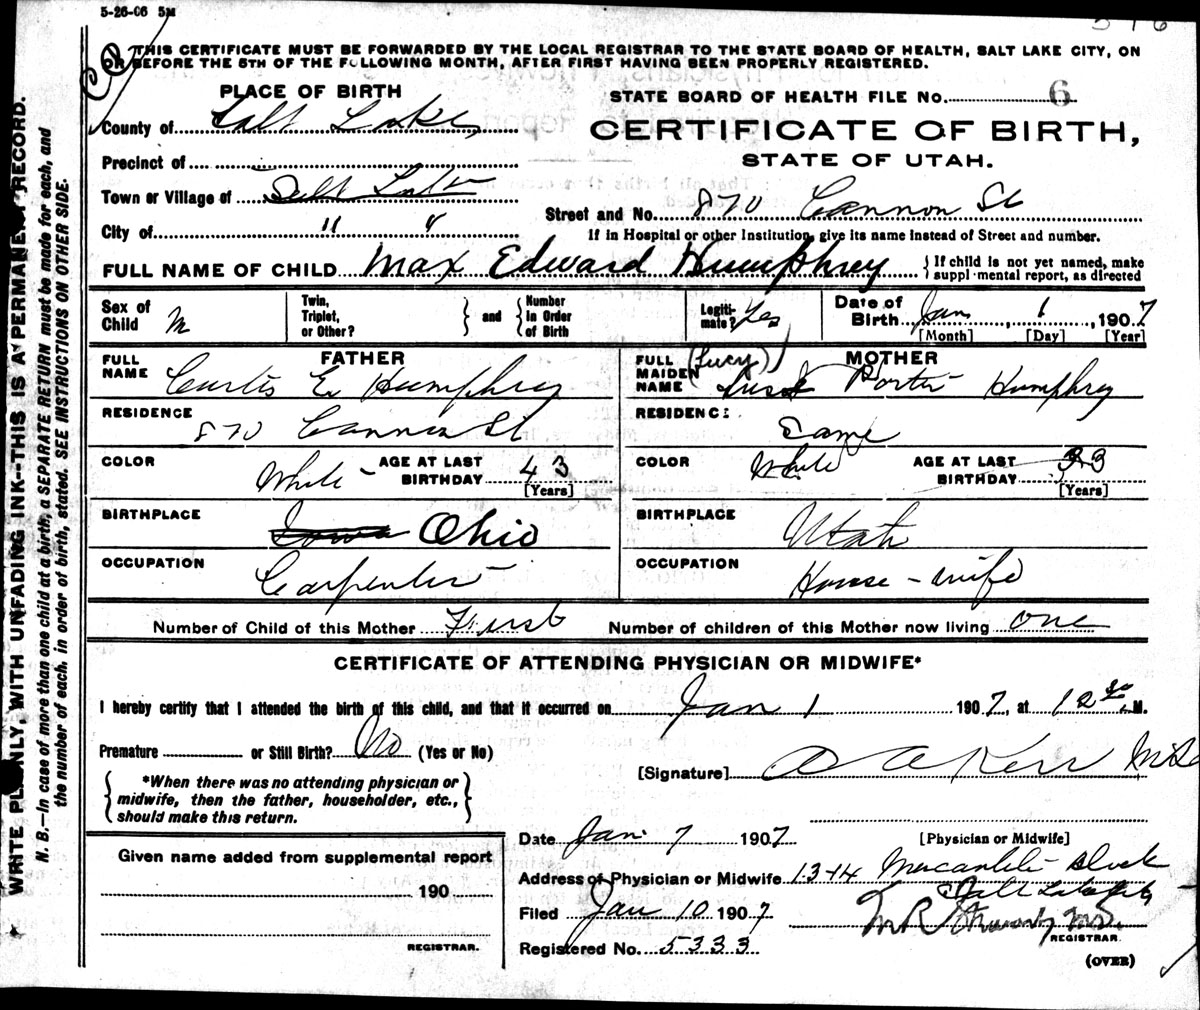 5-26-06 5M
THIS CERTIFICATE MUST BE FORWARDED BY THE LOCAL REGISTRAR TO THE STATE BOARD OF HEALTH, SALT LAKE CITY, ON
OR BEFORE THE 5TH OF THE FOLLOWING MONTH, AFTER FIRST HAVING BEEN PROPERLY REGISTERED.
PLACE OF BIRTH
STATE BOARD OF HEALTH FILE No. 6
County of Salt Lake
CERTIFICATE OF BIRTH,
STATE OF UTAH.
Precinct of
Town or Village of Salt Lake
Street and No. 870 Cannon St
City of " "
If in Hospital or other Institution, give its name instead of Street and number.
FULL NAME OF CHILD Max Edward Humphrey
{ If child is not yet named, make
suppl mental report, as directed
Sex of Child M
Twin, Triplet, or Other? } and { Number in Order of Birth
Legiti-mate? Yes
Date of Birth Jan 1, 1907
[Month] [Day] [Year]
FATHER
FULL NAME Curtis E. Humphrey
MOTHER
FULL MAIDEN NAME (Lucy) Porter Humphrey
RESIDENCE 870 Cannon St
RESIDENCE Same
COLOR White AGE AT LAST BIRTHDAY 43 [Years]
COLOR White AGE AT LAST BIRTHDAY 33 [Years]
BIRTHPLACE Iowa Ohio
BIRTHPLACE Utah
OCCUPATION Carpenter
OCCUPATION House-wife
Number of Child of this Mother First Number of children of this Mother now living one
CERTIFICATE OF ATTENDING PHYSICIAN OR MIDWIFE*
I hereby certify that I attended the birth of this child, and that it occurred on Jan 1 1907, at 12 30 M.
Premature or Still Birth? No (Yes or No)
[Signature] A A Kerr MD
{ *When there was no attending physician or
midwife, then the father, householder, etc.,
should make this return. }
Date Jan. 7 1907
[Physician or Midwife]
Given name added from supplemental report
190
REGISTRAR.
Address of Physician or Midwife 13-14 Mercantile Block
Salt Lake City
Filed Jan 10 1907
REGISTRAR.
Registered No. 5333
(OVER)
WRITE PLAINLY, WITH UNFADING INK--THIS IS A PERMANENT RECORD.
N. B.—In case of more than one child at a birth, a SEPARATE RETURN must be made for each, and
the number of each, in order of birth, stated. SEE INSTRUCTIONS ON OTHER SIDE.